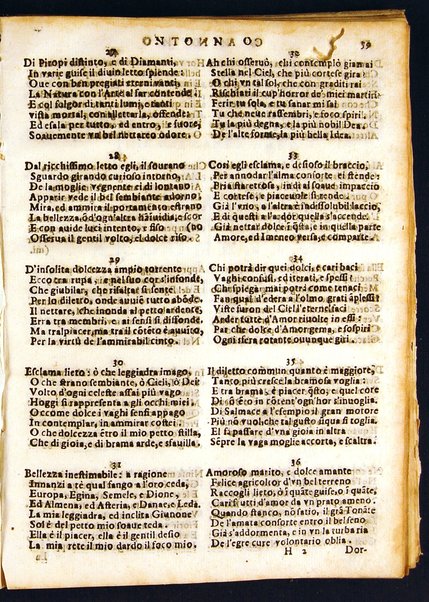 59
27
Di Piropi distinto, e di Diamanti,
In varie guise il diuin letto splende:
Oue con ben pregiati
La Natura con l'Arte al far contende:
E col fulgor di tanti lumi, e tanti
Vista mortal, con allettarla, offende:
Ed esala per tutto, ed entro, e fuore,
Soauemente vn bel nettareo odore.
28
Dal ricchissimo letto egli, il sourano
Sguardo girando curioso intorno,
De la moglie, vegnente ei di lontano
Apparir vede il bel sembiante adorno
Mira, ed ammira il portamento estrano
La bellezza,
E con auide luci intento, e fisso
Osserua il gentil volto, el dolce riso.
29
D'insolita dolcezza ampio torrente
Ecco tra rupa, e nel suo cor s'infonde,
Che giubilar, che risaltar si sente
Per lo diletto, onde auuiè tutto abõde.
Il nettare, che inonda al petto ardente
Erra tra membri, e ai sensi si diffonde.
Ma trapiacer, ma tra il cõtéto è auuinto
Per la virtù de l'ammirabil cinto.
30
Esclama lieto: ò che leggiadra imago,
O che strano sembiante, ò Cieli, ò Dei
Volto d'ogni celeste assai più vago
Hoggi si rappresenta a gli occhi miei
O come dolce i vaghi sensi appago
In contemplar, in ammirar costei.
O che dolcezza étro il mio petto stilla,
Che di gioia, e di brama arde, e sfauilla.
31
Bellezza inestimabile: a ragione
Innanzi a te qual fango a l'oro ceda,
Europa, Egina, Semele, e Dione,
Ed Almena, ed Asteria, e Danae, e Leda.
La mia leggiadra, ed inclita Giunone
Sol é del petto mio soaue teda.
Ella è il piacer, ella è il gentil desio
La mia rete il mio dardo il foco mio.
32
Ah chi osseruò, chi contemplò giamai
Stella nel Ciel, che più cortese gira
O chi vn tal sol, che con graditi rai
Rischiari il cupo horror de' miei martiri
Ferir tu sola, e tu sanar mi sai
Tu che neue rassembri, e foco spiri.
Tu la più degna, e la più nobil Dea
De l'alte forme, la più bella Idea.
33
Così egli esclama, e disioso il braccio,
Per annodar l'alma consorte ei stende:
Pria s'arretrosi, indi al soaue impaccio
E cortese, e piaceuole si rende.
Già l'vno, a l'altra è indissolubil laccio,
E di questi a l'ardor quella s'accende.
Già nettar dolce è q̃sta, e in quella parte
Amore, ed Imeneo versa, e comparte.
34
Chi potrà dir quei dolci, e cari baci
Vaghi confusi, ed iterati, e spessi
Chi spiega mai potrà come tenaci
Fan qual d'edera a l'olmo, grati aplessi:
Viste furon del Ciel l'eterne faci
Ander tutte d'Amor e in essi.
Par che dolce d'Amor gema, e sospiri
Ogni sfera rotante ouunque giri.
35
Il diletto commun quanto è maggiore,
Tanto più cresce la bramosa voglia:
E tra brama, è piacer q̃sto, e quel core
Di se stesso in cõtéto ogn'hor s'inuoglia.
Di Salmace a l'esempio il gran motore
Più nõ vuol, che tal gusto ũqua si toglia.
Et passare d'vna gioia in altra
Sépre la vaga moglie accorta, e scaltra.
36
Amoroso marito, e dolce amante
Felice agricoltor d'vn bel terreno
Raccogli lieto, ò i quãte guise, ò i quãte,
Cari frutti d'amor da vn prato ameno
Quando stanco, nõ satio, il grã Tonãte
De l'amata consorte entro il bel seno,
Già s'addormenta, e in vn la turbaria
De l'egre cure volontario oblia.
H 2
Dor-